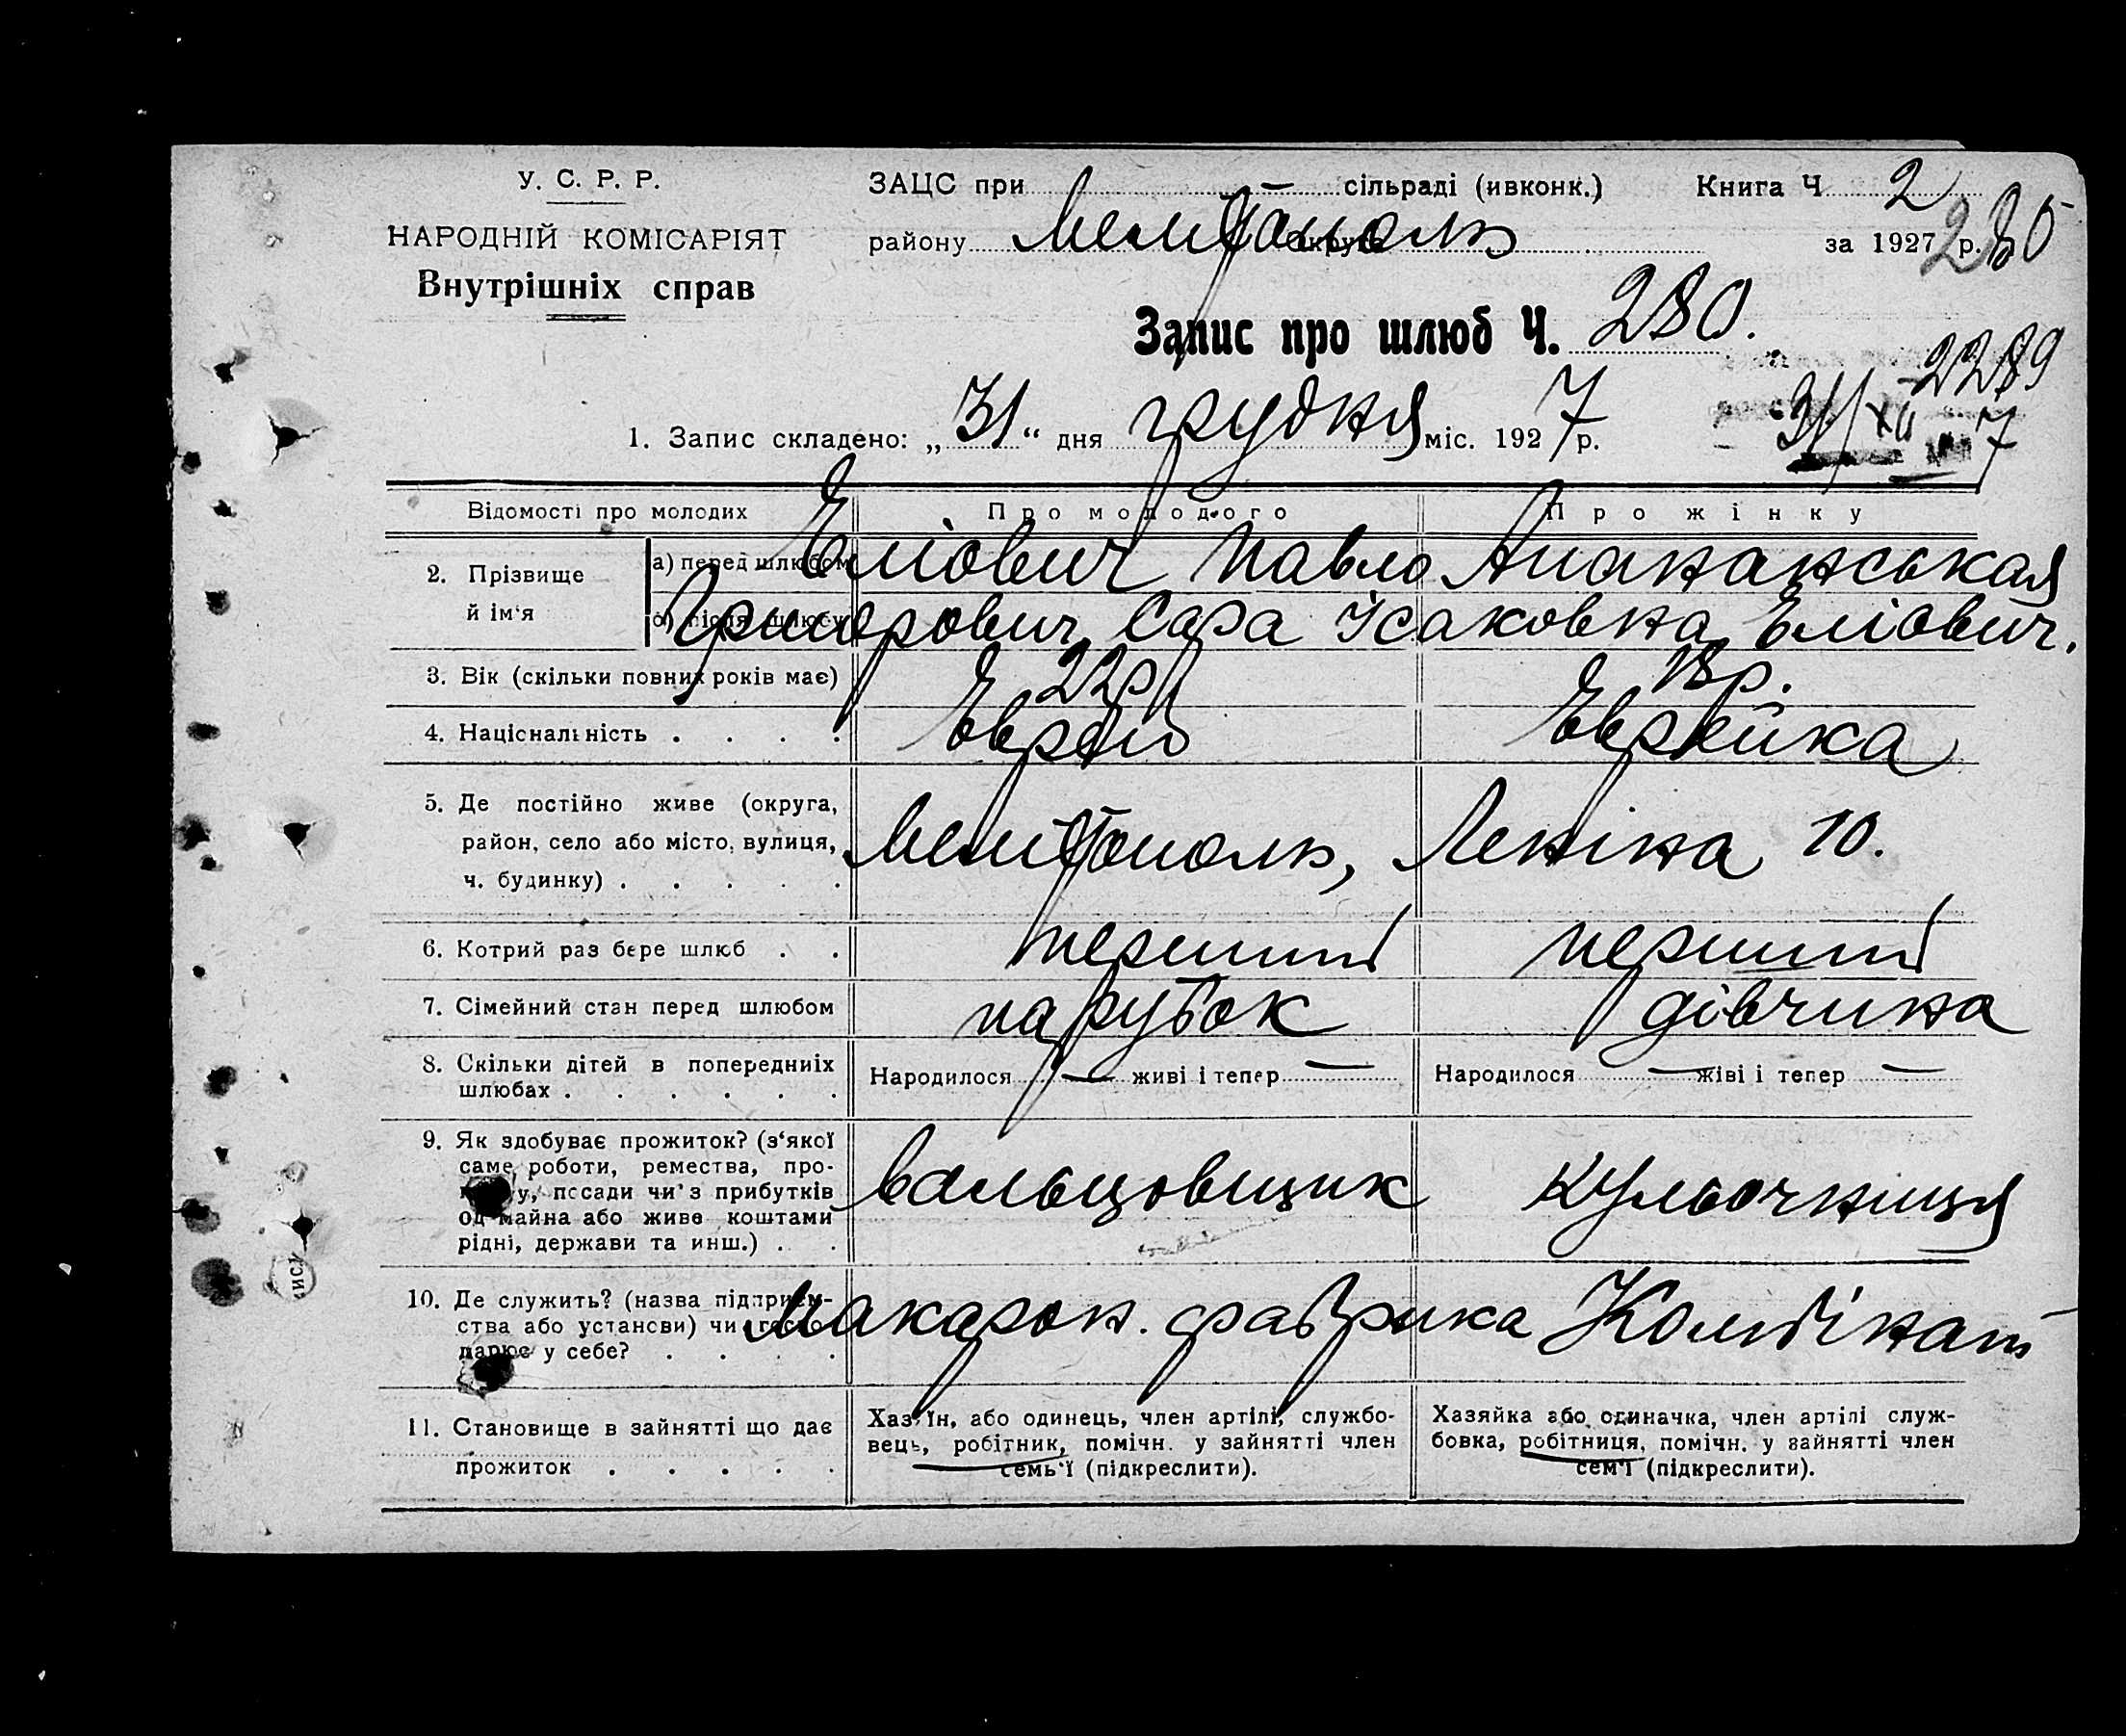 У. С. Р. Р.
НАРОДНІЙ КОМІСАРІЯТ
Внутрішніх справ
ЗАЦС при — сільраді (ивконк.) Книга Ч 2
району Мелітополь округи за 1927 р. 280
Запис про шлюб Ч. 280.
2289
1. Запис складено: „31“ дня грудня міс. 1927 р. 31/XII 7
Відомості про молодих Про молодого Про жінку
2. Прізвище й ім‘я
а) перед шлюбом Еліович Павло Ананьнськая
б) після шлюбу Григорович, Сара Ісаковна, Еліович.
3. Вік (скільки повних років має) 22р 18р.
4. Національність . . . . Еврей Еврейка
5. Де постійно живе (округа,
район, село або місто, вулиця, Мелітополь, Леніна 10.
ч. будинку) . . . . .
6. Котрий раз бере шлюб . . перший перший
7. Сімейний стан перед шлюбом парубок дівчина
8. Скільки дітей в попередниіх Народилося — живі і тепер — Народилося — жіві і тепер —
шлюбах . . . . . .
9. Як здобуває прожиток? (з‘якої
саме роботи, ремества, про-
у, посади чи‘з прибутків вальцовщик кульочниця
од майна або живе коштами
рідні, держави та инш.) . .
10. Де служить? (назва підприєм-
ства або установи) чи госпо- Макарон. фабрика Комбінат
дарює у себе? . . . .
11. Становище в зайнятті що дає
прожиток . . . . .
Хазяїн, або одинець, член артілі, службо-
вець, робітник, помічн. у зайнятті член
семь‘ї (підкреслити).
Хазяйка або одиначка, член артілі служ-
бовка, робітниця, помічн. у зайнятті член
сем‘ї (підкреслити).